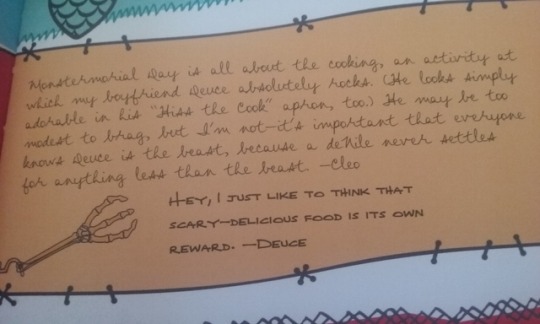 Monstermorial Day is all about the cooking, an activity at
which my boyfriend Deuce absolutely rocks. (He looks simply
adorable in his "Hiss the Cook" apron, too.) He may be too
modest to brag, but I'm not—it's important that everyone
knows Deuce is the beast, because a deNile never settles
for anything less than the beast. —Cleo
Hey, I just like to think that
scary-delicious food is its own
reward. —Deuce